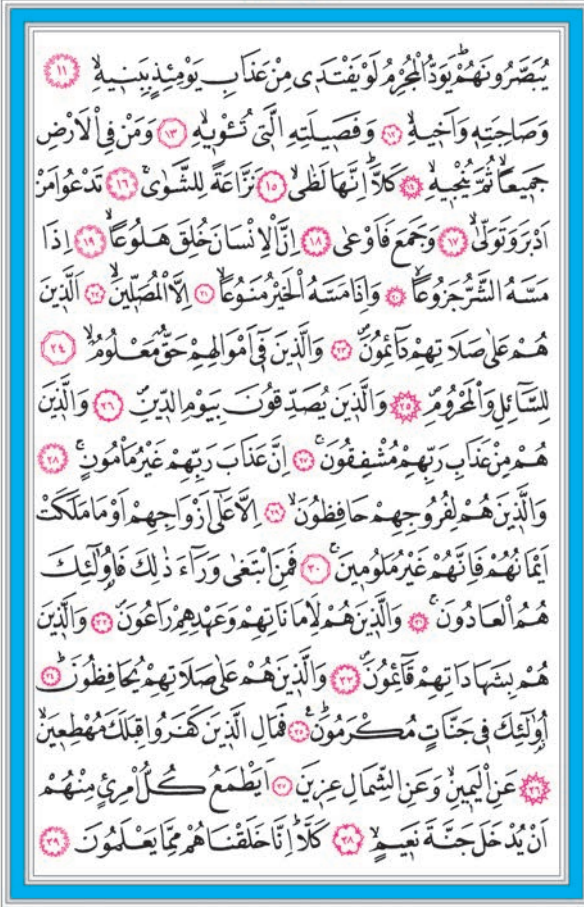 يُبَصَّرُونَهُمْۜ يَوَدُّ الْمُجْرِمُ لَوْ يَفْتَدٖى مِنْ عَذَابِ يَوْمِئِذٍ بِبَنٖيهِۙ ﴿١١﴾
وَصَاحِبَتِهٖ وَاَخٖيهِۙ ﴿١٢﴾ وَفَصٖيلَتِهِ الَّتٖى تُـْٔوٖيهِۙ ﴿١٣﴾ وَمَنْ فِى الْاَرْضِ
جَمٖيعًاۙ ثُمَّ يُنْجٖيهِۙ ﴿١٤﴾ كَلَّاۜ اِنَّهَا لَظٰىۙ ﴿١٥﴾ نَزَّاعَةً لِلشَّوٰىۚ ﴿١٦﴾ تَدْعُوا مَنْ
اَدْبَرَ وَتَوَلّٰىۙ ﴿١٧﴾ وَجَمَعَ فَاَوْعٰى ﴿١٨﴾ اِنَّ الْاِنْسَانَ خُلِقَ هَلُوعًاۙ ﴿١٩﴾ اِذَا
مَسَّهُ الشَّرُّ جَزُوعًاۙ ﴿٢٠﴾ وَاِذَا مَسَّهُ الْخَيْرُ مَنُوعًاۙ ﴿٢١﴾ اِلَّا الْمُصَلّٖينَۙ ﴿٢٢﴾ اَلَّذٖينَ
هُمْ عَلٰى صَلَاتِهِمْ دَٓائِمُونَۙ ﴿٢٣﴾ وَالَّذٖينَ فٖٓى اَمْوَالِهِمْ حَقٌّ مَعْلُومٌۙ ﴿٢٤﴾
لِلسَّٓائِلِ وَالْمَحْرُومِۙ ﴿٢٥﴾ وَالَّذٖينَ يُصَدِّقُونَ بِيَوْمِ الدّٖينِۙ ﴿٢٦﴾ وَالَّذٖينَ
هُمْ مِنْ عَذَابِ رَبِّهِمْ مُشْفِقُونَۚ ﴿٢٧﴾ اِنَّ عَذَابَ رَبِّهِمْ غَيْرُ مَاْمُونٍۚ ﴿٢٨﴾
وَالَّذٖينَ هُمْ لِفُرُوجِهِمْ حَافِظُونَۙ ﴿٢٩﴾ اِلَّا عَلٰٓى اَزْوَاجِهِمْ اَوْ مَا مَلَكَتْ
اَيْمَانُهُمْ فَاِنَّهُمْ غَيْرُ مَلُومٖينَۚ ﴿٣٠﴾ فَمَنِ ابْتَغٰى وَرَٓاءَ ذٰلِكَ فَاُو۬لٰٓئِكَ
هُمُ الْعَادُونَۚ ﴿٣١﴾ وَالَّذٖينَ هُمْ لِاَمَانَاتِهِمْ وَعَهْدِهِمْ رَاعُونَۙ ﴿٣٢﴾ وَالَّذٖينَ
هُمْ بِشَهَادَاتِهِمْ قَٓائِمُونَۙ ﴿٣٣﴾ وَالَّذٖينَ هُمْ عَلٰى صَلَاتِهِمْ يُحَافِظُونَۜ ﴿٣٤﴾
اُو۬لٰٓئِكَ فٖى جَنَّاتٍ مُكْرَمُونَۜ ﴿٣٥﴾ فَمَالِ الَّذٖينَ كَفَرُوا قِبَلَكَ مُهْطِعٖينَۙ
﴿٣٦﴾ عَنِ الْيَمٖينِ وَعَنِ الشِّمَالِ عِزٖينَ ﴿٣٧﴾ اَيَطْمَعُ كُلُّ امْرِئٍ مِنْهُمْ
اَنْ يُدْخَلَ جَنَّةَ نَعٖيمٍۙ ﴿٣٨﴾ كَلَّاۜ اِنَّا خَلَقْنَاهُمْ مِمَّا يَعْلَمُونَ ﴿٣٩﴾